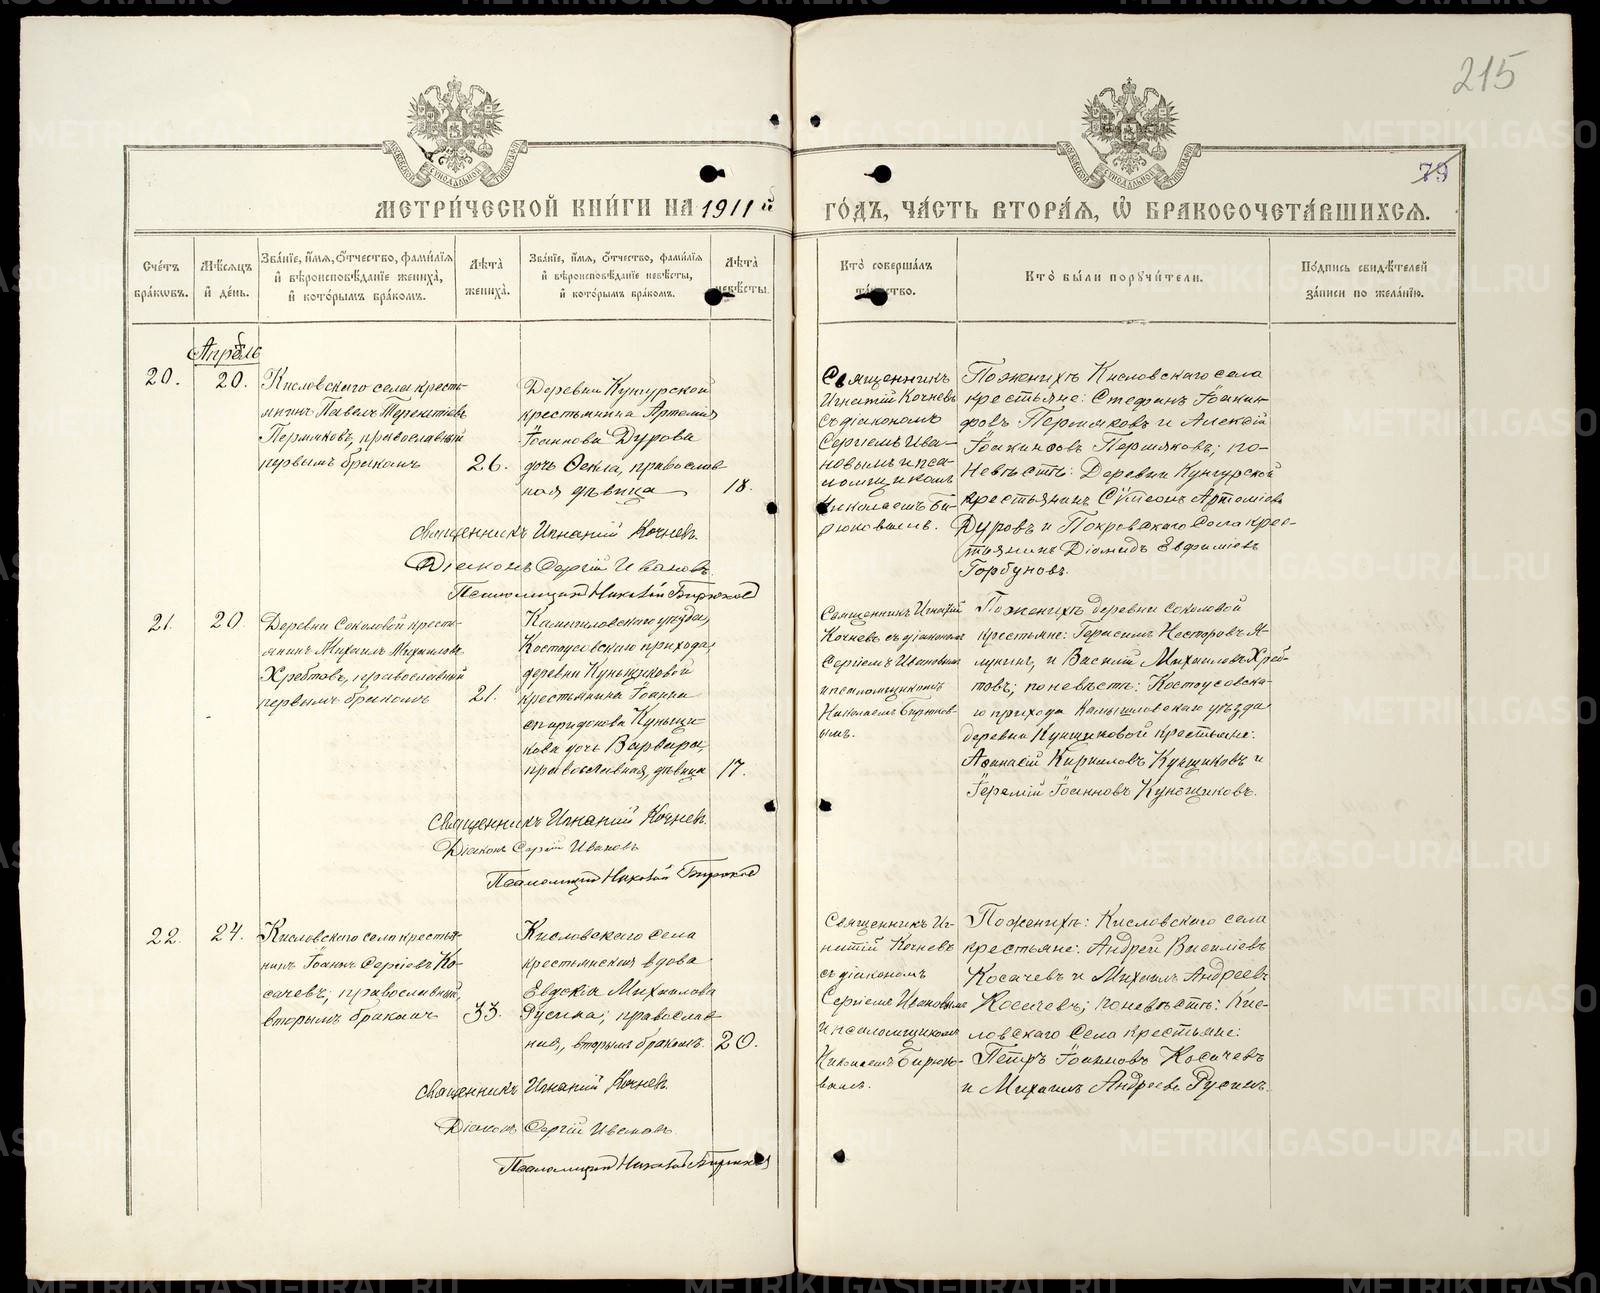 215
79
МЕТРИ́ЧЕСКОЙ КНИ́ГИ НА 1911й
ГО́ДЪ, ЧА́СТЬ ВТОРА́Я, Ѡ БРАКОСОЧЕТА́ВШИХСЯ.
Сче́тъ бра́кѡвъ.
Мѣ́сяцъ и де́нь.
Зва́нїе, и́мя, ѻ́тчество, фами́лїя и вѣроисповѣ́данїе жениха̀, и кото́рымъ бра́комъ.
Лѣ́та жениха̀.
Зва́нїе, и́мя, ѻ́тчество, фами́лїя и вѣроисповѣ́данїе невѣ́сты, и кото́рымъ бра́комъ.
Лѣ́та невѣ́сты.
Кто̀ соверша́лъ та́инство.
Кто̀ бы́ли поручи́тели.
По́дпись свидѣ́телей за́писи по жела́нїю.
Апрѣль
20.
20.
Кисловскаго села кресть-
янинъ Павелъ Терентіевъ
Пермяковъ, православный
первымъ бракомъ
26.
Деревни Кунгурской
крестьянина Артемія
Іоаннова Дурова
дочь Ѳекла, православ
ная дѣвица
18.
Священникъ
Игнатій Кочневъ
съ діакономъ
Сергіемъ Ива-
новымъ и пса-
ломщикомъ
Николаемъ Би-
рюковымъ.
По женихѣ Кисловскаго села
крестьяне: Стефанъ Іоакин-
фовъ Пермяковъ и Алексій
Іоакинфовъ Пермяковъ; по
невѣстѣ: Деревни Кунгурской
крестьянинъ Сѵмеонъ Артеміевъ
Дуровъ и Покровскаго села крес-
тьянинъ Діомидъ Евфиміевъ
Горбуновъ.
Священникъ Игнатій Кочневъ.
Діаконъ Сергій Ивановъ.
Псаломщикъ Николай Бирюковъ
21.
20.
Деревни Соколовой кресть-
янинъ Михаилъ Михаиловъ
Хребтовъ, православный
первымъ бракомъ
21.
Камышловскаго уѣзда,
Костоусовскаго прихода,
деревни Куньщиковой
крестьянина Іоанна
Спиридонова Куньщи-
кова дочь Варвара,
православная, дѣвица
17.
Священникъ Игнатій
Кочневъ съ діакономъ
Сергіемъ Ивановымъ
и псаломщикомъ
Николаемъ Бирюков-
ымъ.
По женихѣ деревни Соколовой
крестьяне: Герасимъ Несторовъ Я-
лунинъ, и Василій Михаиловъ Хреб-
товъ; по невѣстѣ: Костоусовска-
го прихода Камышловскаго уѣзда
деревни Кунщиковой крестьяне:
Аѳанасій Кирилловъ Кунщиковъ и
Іеремій Іоанновъ Куньщиковъ.
Священникъ Игнатій Кочневъ.
Діаконъ Сергій Ивановъ
Псаломщикъ Николай Бирюковъ
22.
24.
Кисловскаго села кресть-
нинъ Іоаннъ Сергіевъ Ко-
сачевъ; православный,
вторымъ бракомъ
33.
Кисловскаго села
крестьянская вдова
Евдокія Михаилова
Русина; православ
ная, вторымъ бракомъ.
20.
Священникъ Иг-
натій Кочневъ
съ діакономъ
Сергіемъ Ивановымъ
и псаломщикомъ
Николаемъ Бирюко-
вымъ.
По женихѣ: Кисловскаго села
крестьяне: Андрей Василіевъ
Косачевъ и Михаилъ Андреевъ
Косачевъ; по невѣстѣ: Кис-
ловскаго села крестьяне:
Петръ Іоанновъ Косачевъ
и Михаилъ Андреевъ Русинъ.
Священникъ Игнатій Кочневъ.
Діаконъ Сергій Ивановъ.
Псаломщикъ Николай Бирюковъ
METRIKI.GASO-URAL.RU